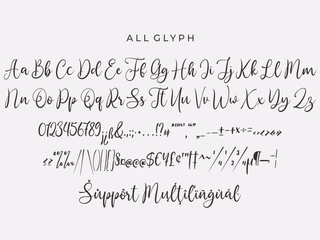 ALL GLYPH
Aa Bb Cc Dd Ee Ff Gg Hh Ii Jj Kk Ll Mm
Nn Oo Pp Qq Rr Ss Tt Uu Vv Ww Xx Yy Zz
0123456789
Support Multilingual